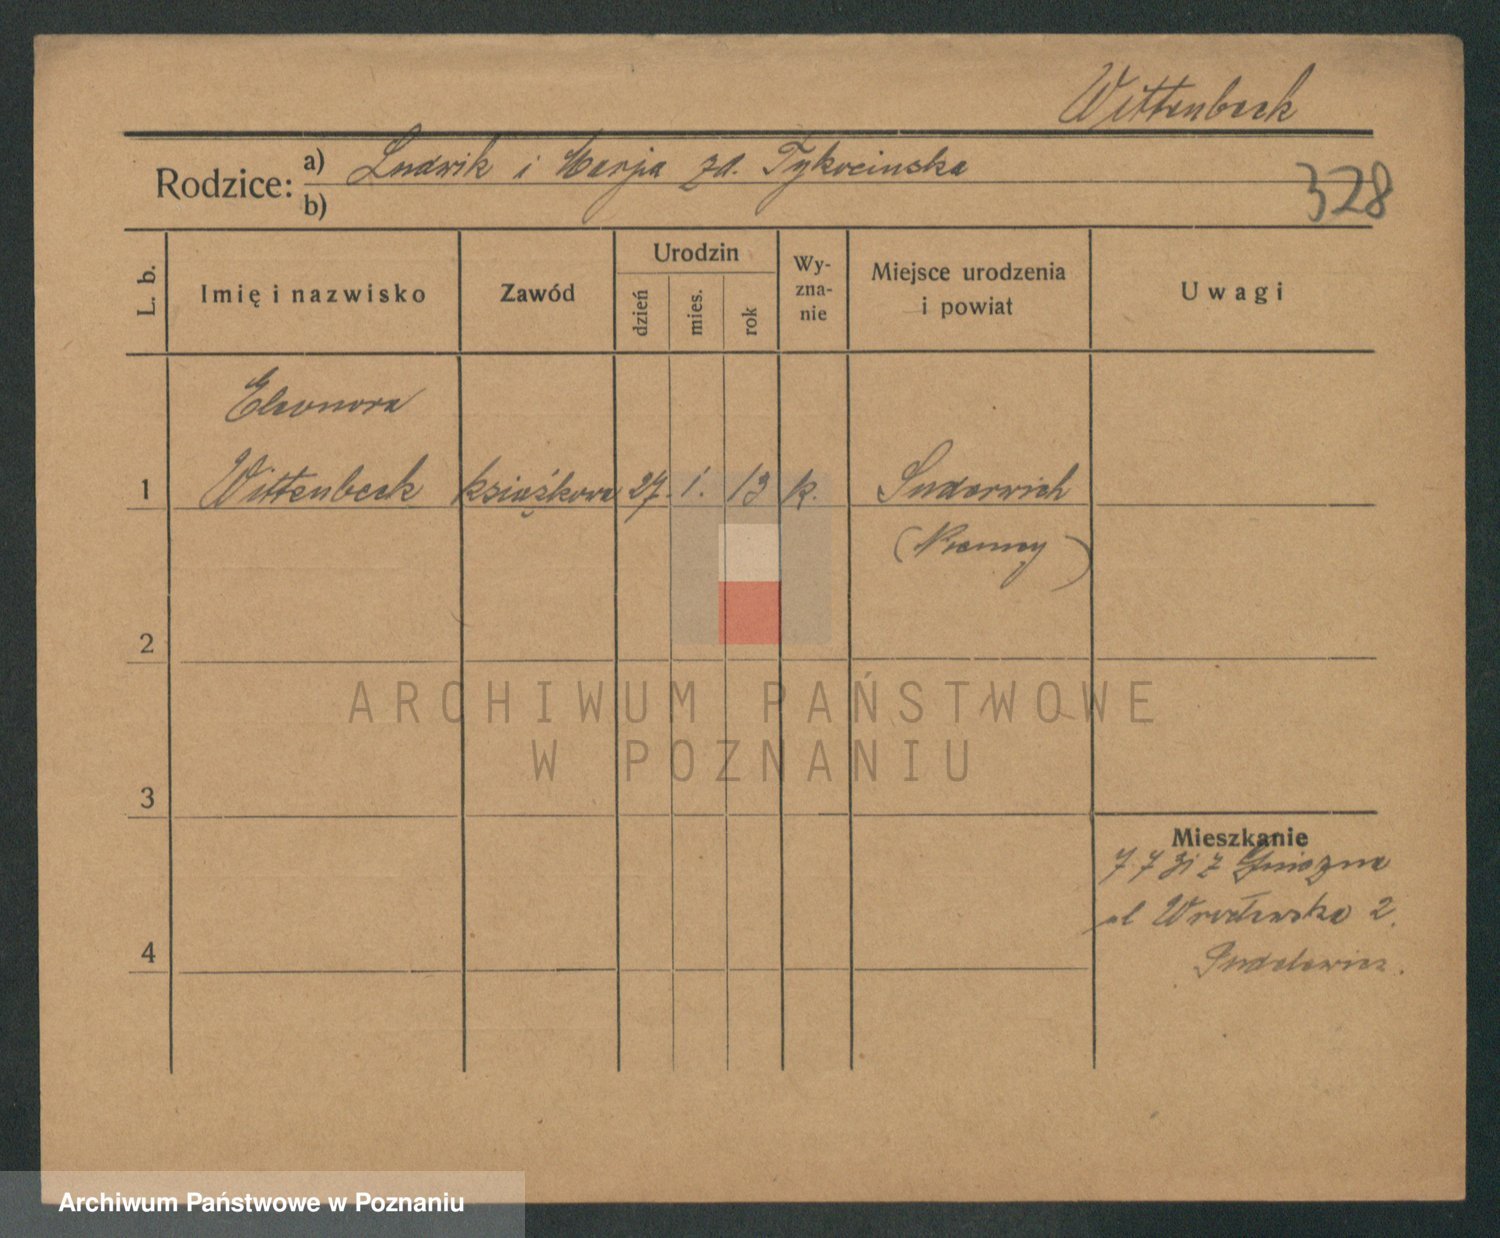 Wittenbeck
Rodzice: a) Ludwik i Marja zd. Tykocinska
b)
328
L. b.
Imię i nazwisko
Zawód
Urodzin
dzień
mies.
rok
Wy-
zna-
nie
Miejsce urodzenia
i powiat
Uwagi
Eleonora
1 Wittenbeck książkowa 27. 1. 13 k. Suderwich
(Niemcy)
2
3
4
Mieszkanie
7 7 31 z Gniezna
ul Wrocławska 2.
ARCHIWUM PAŃSTWOWE
W POZNANIU
Archiwum Państwowe w Poznaniu